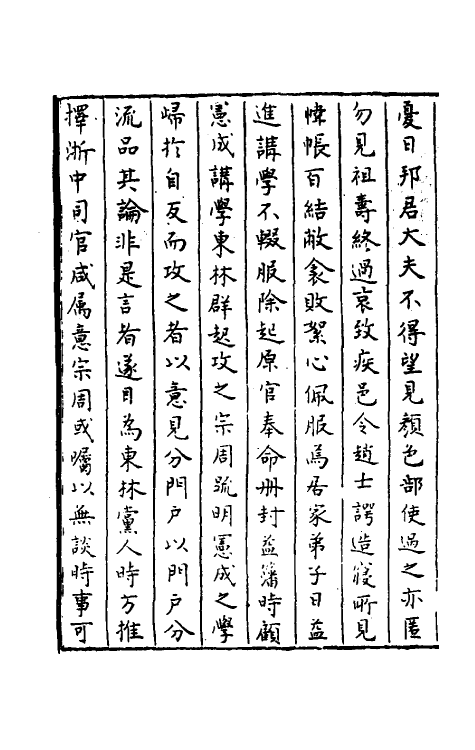 憂日邦君大夫不得望見顏色部使過之亦匿
勿見祖壽終過哀致疾邑令趙士諤造寢所見
幃帳百結敝衾敗絮心佩服焉居家弟子日益
進講學不輟服除起原官奉命册封益籓時顧
憲成講學東林群起攻之宗周疏明憲成之學
歸於自反而攻之者以意見分門户以門户分
流品其論非是言者遂目為東林黨人時方推
擇浙中司官咸属意宗周或囑以無談時事可